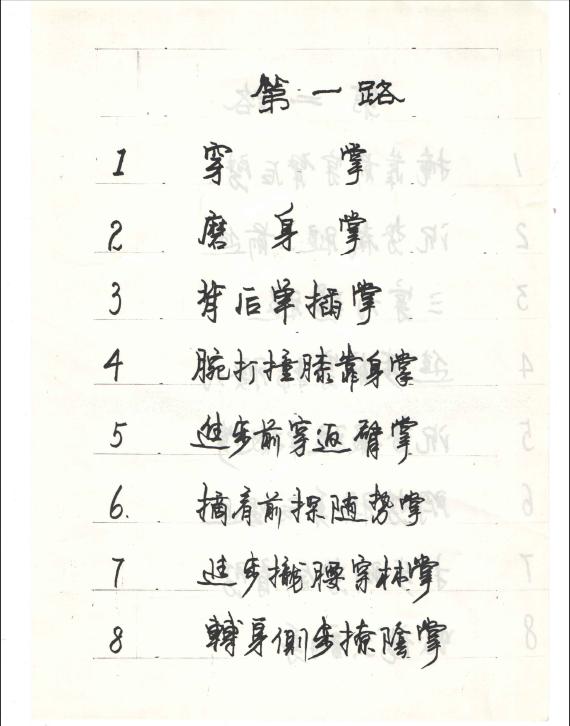 第一路
1 穿掌
2 磨身掌
3 背后单插掌
4 腕打撞膝靠身掌
5 进步前穿返臂掌
6. 摘肴前探随势掌
7 进步拢腰穿林掌
8 轉身側步撩陰掌